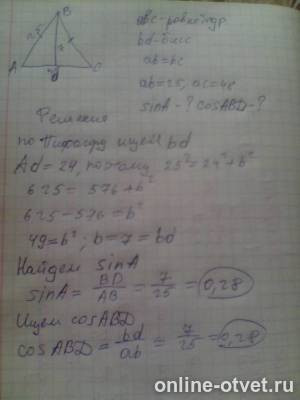 B
25
A
d
C
abc - равнобедр
bd - бисс
ab=bc
ab=25, ac=48
sinA-? cosABD-?
Решение
по Пифагору ищем bd
Ad=24, поэтому 25²=24²+b²
625= 576+b²
625-576=b²
49=b²; b=7=bd
Найдем sinA
sinA= BD/AB = 7/25 = 0,28
Ищем cosABD
cosABD= bd/ab = 7/25 = 0,28
online-otvet.ru